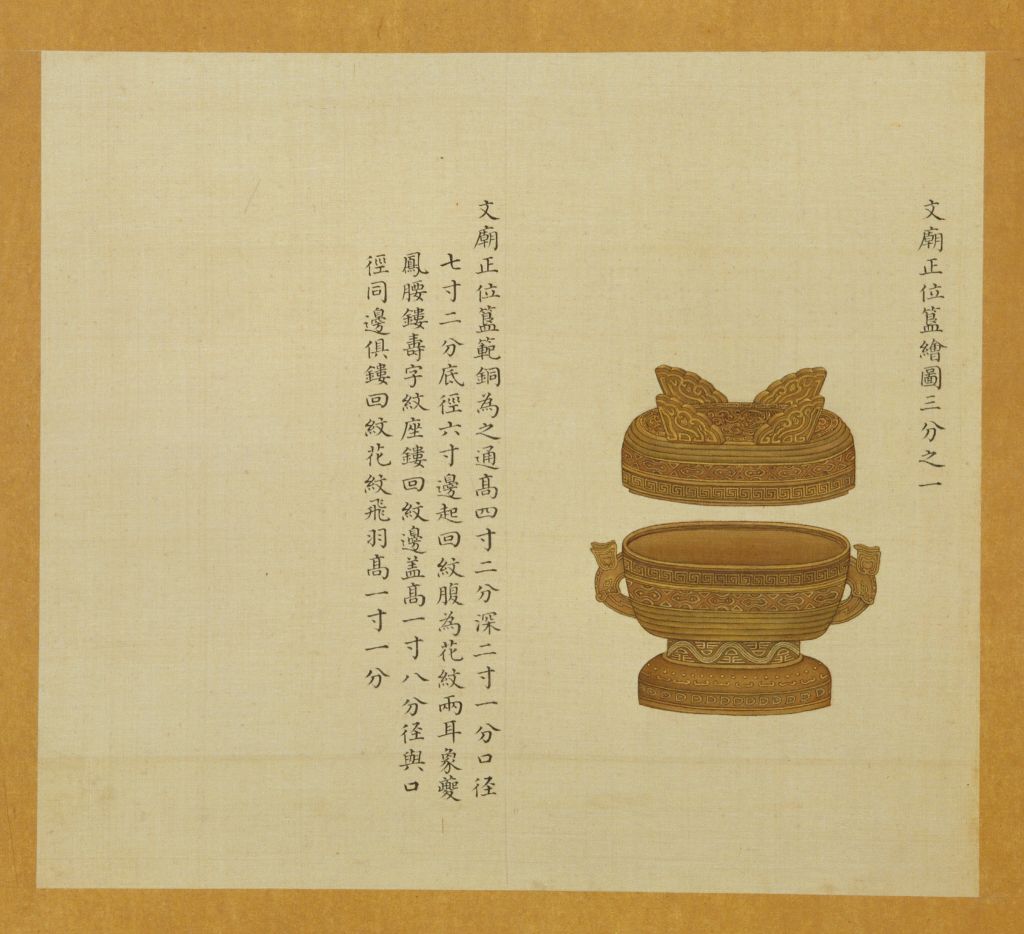 文廟正位簋繪圖三分之一
文廟正位簋範銅為之通髙四寸二分深二寸一分口径
七寸二分底径六寸邊起回紋腹為花紋兩耳象夔
鳳腰鏤壽字紋座鏤回紋邊盖髙一寸八分径與口
徑同邊俱鏤回紋花紋飛羽髙一寸一分